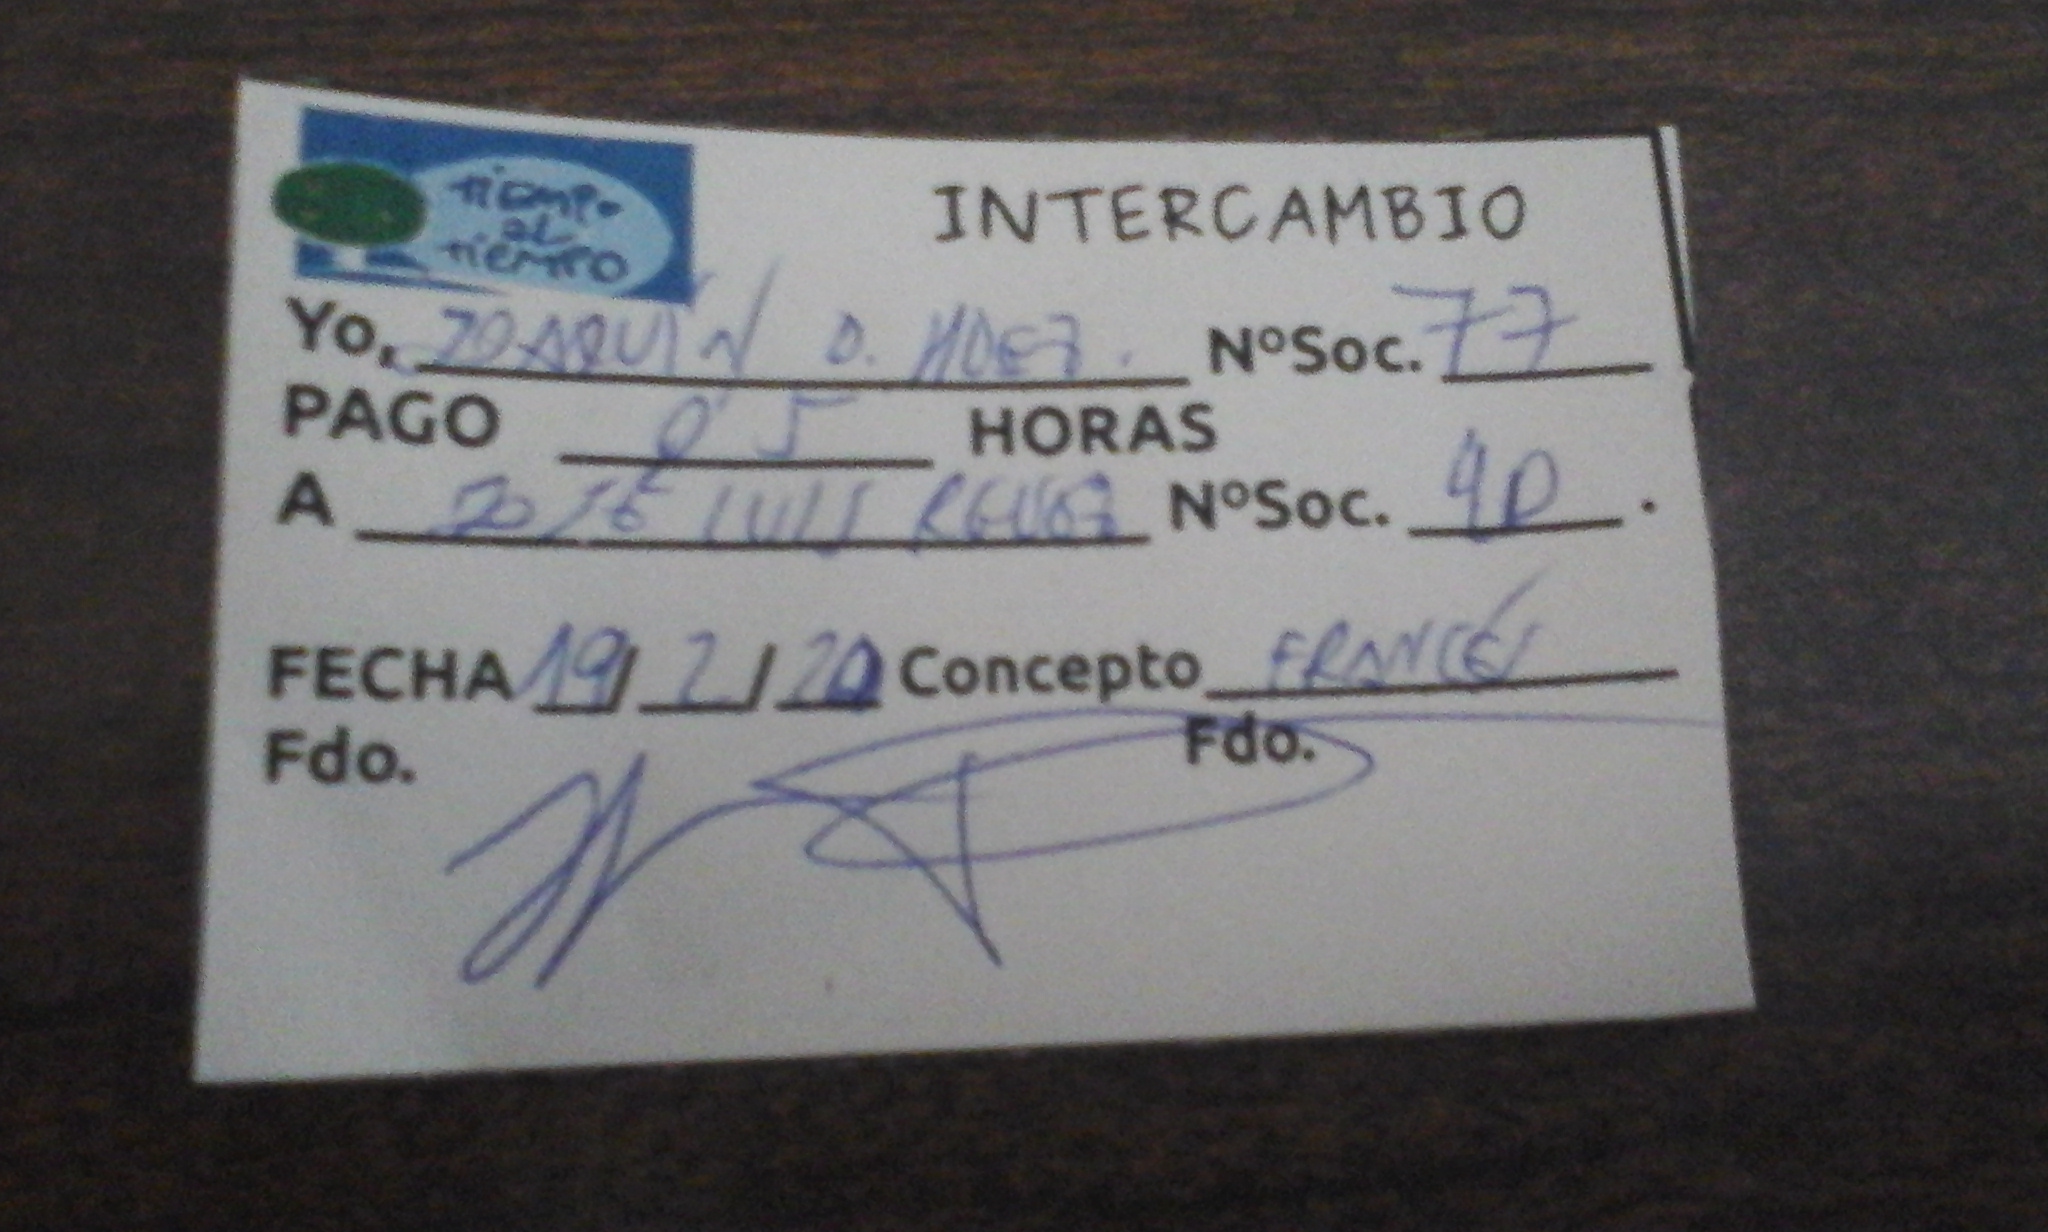 Tiempo
al
Tiempo
INTERCAMBIO
Yo, JOAQUÍN D. HDEZ. NºSoc. 77
PAGO 0'5 HORAS
A JOSÉ LUIS NºSoc. 40.
FECHA 19/2/20 Concepto FRANCÉS
Fdo. Fdo.